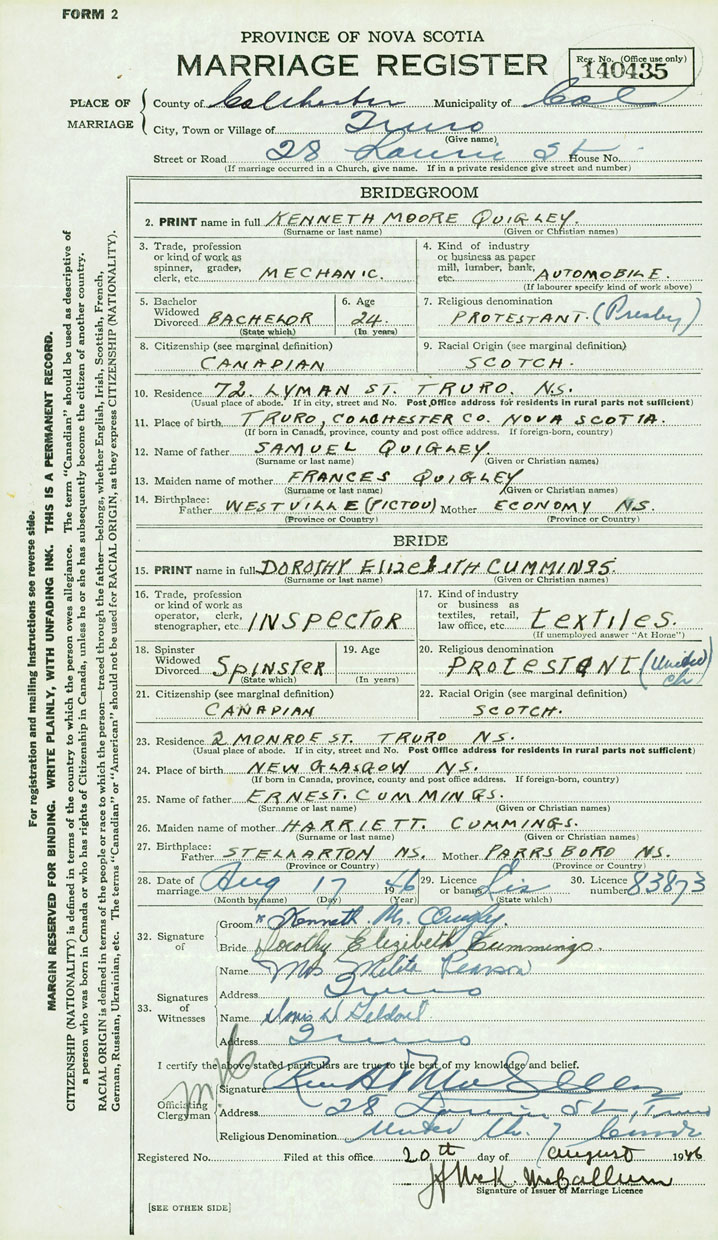 FORM 2
PROVINCE OF NOVA SCOTIA
MARRIAGE REGISTER
Reg. No. (Office use only)
140435
PLACE OF MARRIAGE
County of Colchester Municipality of Col
City, Town or Village of Truro
(Give name)
Street or Road 28 Laurie St House No.
(If marriage occurred in a Church, give name. If in a private residence give street and number)
BRIDEGROOM
2. PRINT name in full KENNETH MOORE QUIGLEY.
(Surname or last name) (Given or Christian names)
3. Trade, profession or kind of work as spinner, grader, clerk, etc. MECHANIC.
4. Kind of industry or business as paper mill, lumber, bank, etc. AUTOMOBILE.
(If labourer specify kind of work above)
5. Bachelor Widowed Divorced BACHELOR
(State which)
6. Age 24.
(In years)
7. Religious denomination PROTESTANT. (Presby)
8. Citizenship (see marginal definition) CANADIAN
9. Racial Origin (see marginal definition) SCOTCH.
10. Residence 72. LYMAN ST. TRURO. N.S.
(Usual place of abode. If in city, street and No. Post Office address for residents in rural parts not sufficient)
11. Place of birth TRURO, COLCHESTER CO. NOVA SCOTIA.
(If born in Canada, province, county and post office address. If foreign-born, country)
12. Name of father SAMUEL QUIGLEY.
(Surname or last name) (Given or Christian names)
13. Maiden name of mother FRANCES QUIGLEY
(Surname or last name) (Given or Christian names)
14. Birthplace: Father WESTVILLE (PICTOU) Mother ECONOMY N.S.
(Province or Country) (Province or Country)
BRIDE
15. PRINT name in full DOROTHY ElizebITH CUMMINGS.
(Surname or last name) (Given or Christian names)
16. Trade, profession or kind of work as operator, clerk, stenographer, etc. INSPECTOR
17. Kind of industry or business as textiles, retail, law office, etc. textiles.
(If unemployed answer "At Home")
18. Spinster Widowed Divorced SPINSTER
(State which)
19. Age
(In years)
20. Religious denomination PROTESTANT (United ch)
21. Citizenship (see marginal definition) CANADIAN
22. Racial Origin (see marginal definition) SCOTCH.
23. Residence 2 MONROE ST. TRURO N.S.
(Usual place of abode. If in city, street and No. Post Office address for residents in rural parts not sufficient)
24. Place of birth NEW GLASGOW N.S.
(If born in Canada, province, county and post office address. If foreign-born, country)
25. Name of father ERNEST. CUMMINGS.
(Surname or last name) (Given or Christian names)
26. Maiden name of mother HARRIETT. CUMMINGS.
(Surname or last name) (Given or Christian names)
27. Birthplace: Father STELLARTON N.S. Mother PARRSBORO N.S.
(Province or Country) (Province or Country)
28. Date of marriage Aug 17 1946
(Month by name) (Day) (Year)
29. Licence or banns Lis
(State which)
30. Licence number 83873
32. Signature of
Groom x Kenneth. M. Quigley.
Bride Dorothy Elizibeth Cummings.
33. Signatures of Witnesses
Name Mrs Melita Pearson
Address Truro
Name
Address Truro
I certify the above stated particulars are true to the best of my knowledge and belief.
Officiating Clergyman
Signature Rev
Address 28 Laurie St, Truro
Religious Denomination United Ch. of Canada
Registered No. Filed at this office 20th day of August 1946
J McK. McCallum
Signature of Issuer of Marriage Licence
[SEE OTHER SIDE]
For registration and mailing instructions see reverse side.
MARGIN RESERVED FOR BINDING. WRITE PLAINLY, WITH UNFADING INK. THIS IS A PERMANENT RECORD.
CITIZENSHIP (NATIONALITY) is defined in terms of the country to which the person owes allegiance. The term "Canadian" should be used as descriptive of
a person who was born in Canada or who has rights of Citizenship in Canada, unless he or she has subsequently become the citizen of another country.
RACIAL ORIGIN is defined in terms of the people or race to which the person—traced through the father—belongs, whether English, Irish, Scottish, French,
German, Russian, Ukrainian, etc. The terms "Canadian" or "American" should not be used for RACIAL ORIGIN, as they express CITIZENSHIP (NATIONALITY).